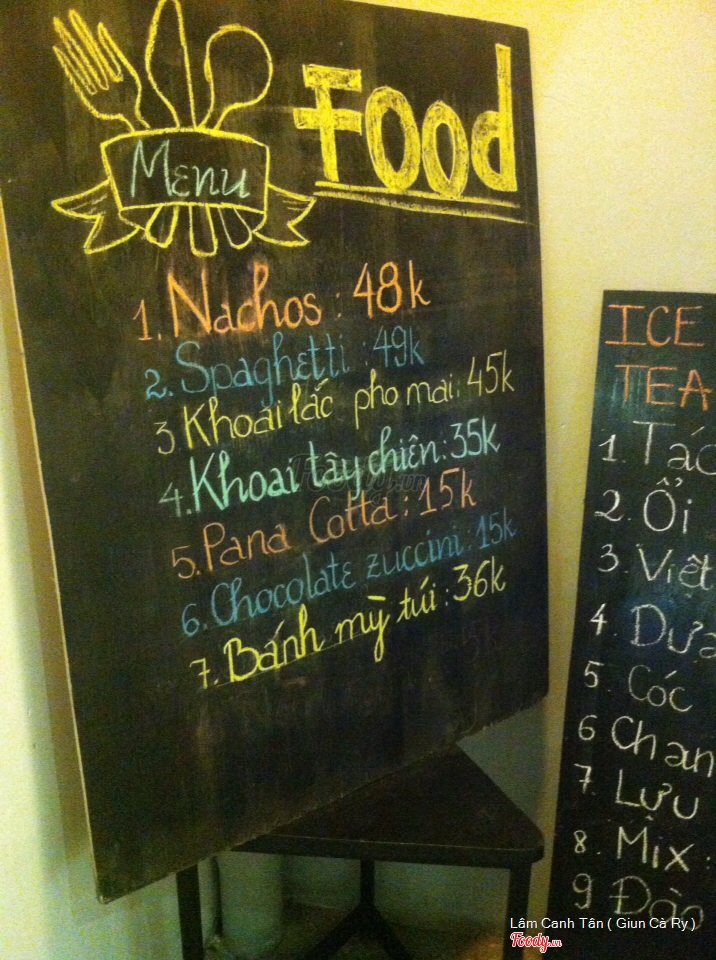 Menu
Food
1. Nachos : 48k
2. Spaghetti : 49k
3 Khoai lắc pho mai: 45k
4. Khoai tây chiên: 35k
5. Pana Cotta : 15k
6. Chocolate zuccini: 15k
7. Bánh mỳ túi : 36k
ICE
TEA
1. Tắc
2. Ổi
3. Việt
4. Dưa
5. Cóc
6 Chan
7. Lựu
8. Mix :
9 Đào
Lâm Canh Tân ( Giun Cà Ry )
Foody.vn